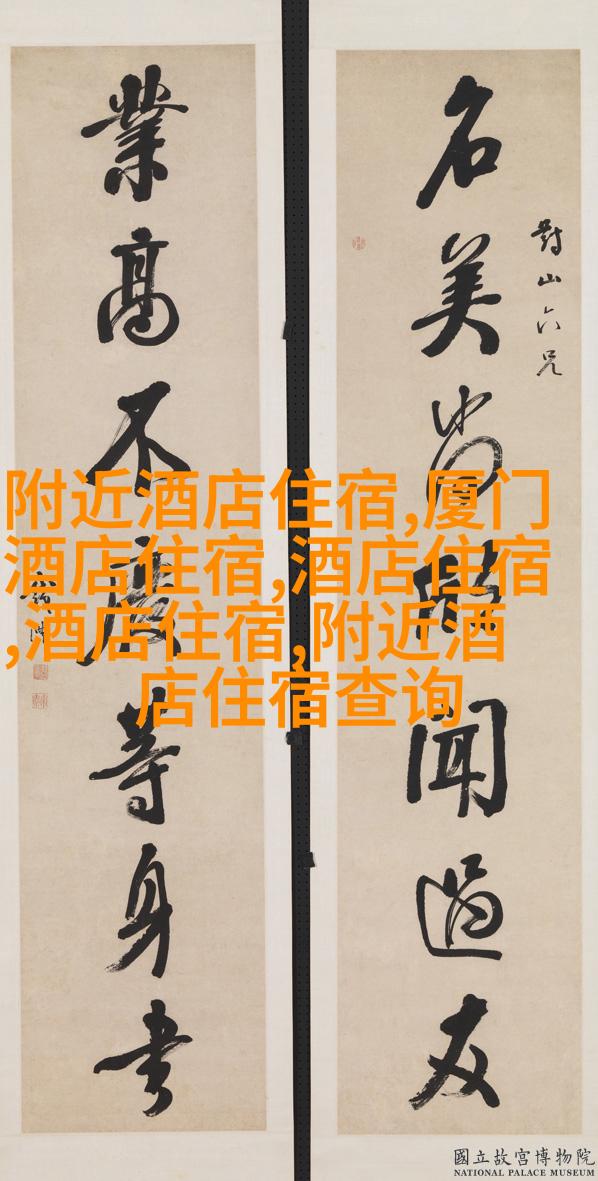 對山六兄
名美尚欣聞過友
業高不廢等身書
附近酒店住宿,厦门
酒店住宿,酒店住宿
,酒店住宿,附近酒
店住宿查询
國立故宮博物院
NATIONAL PALACE MUSEUM